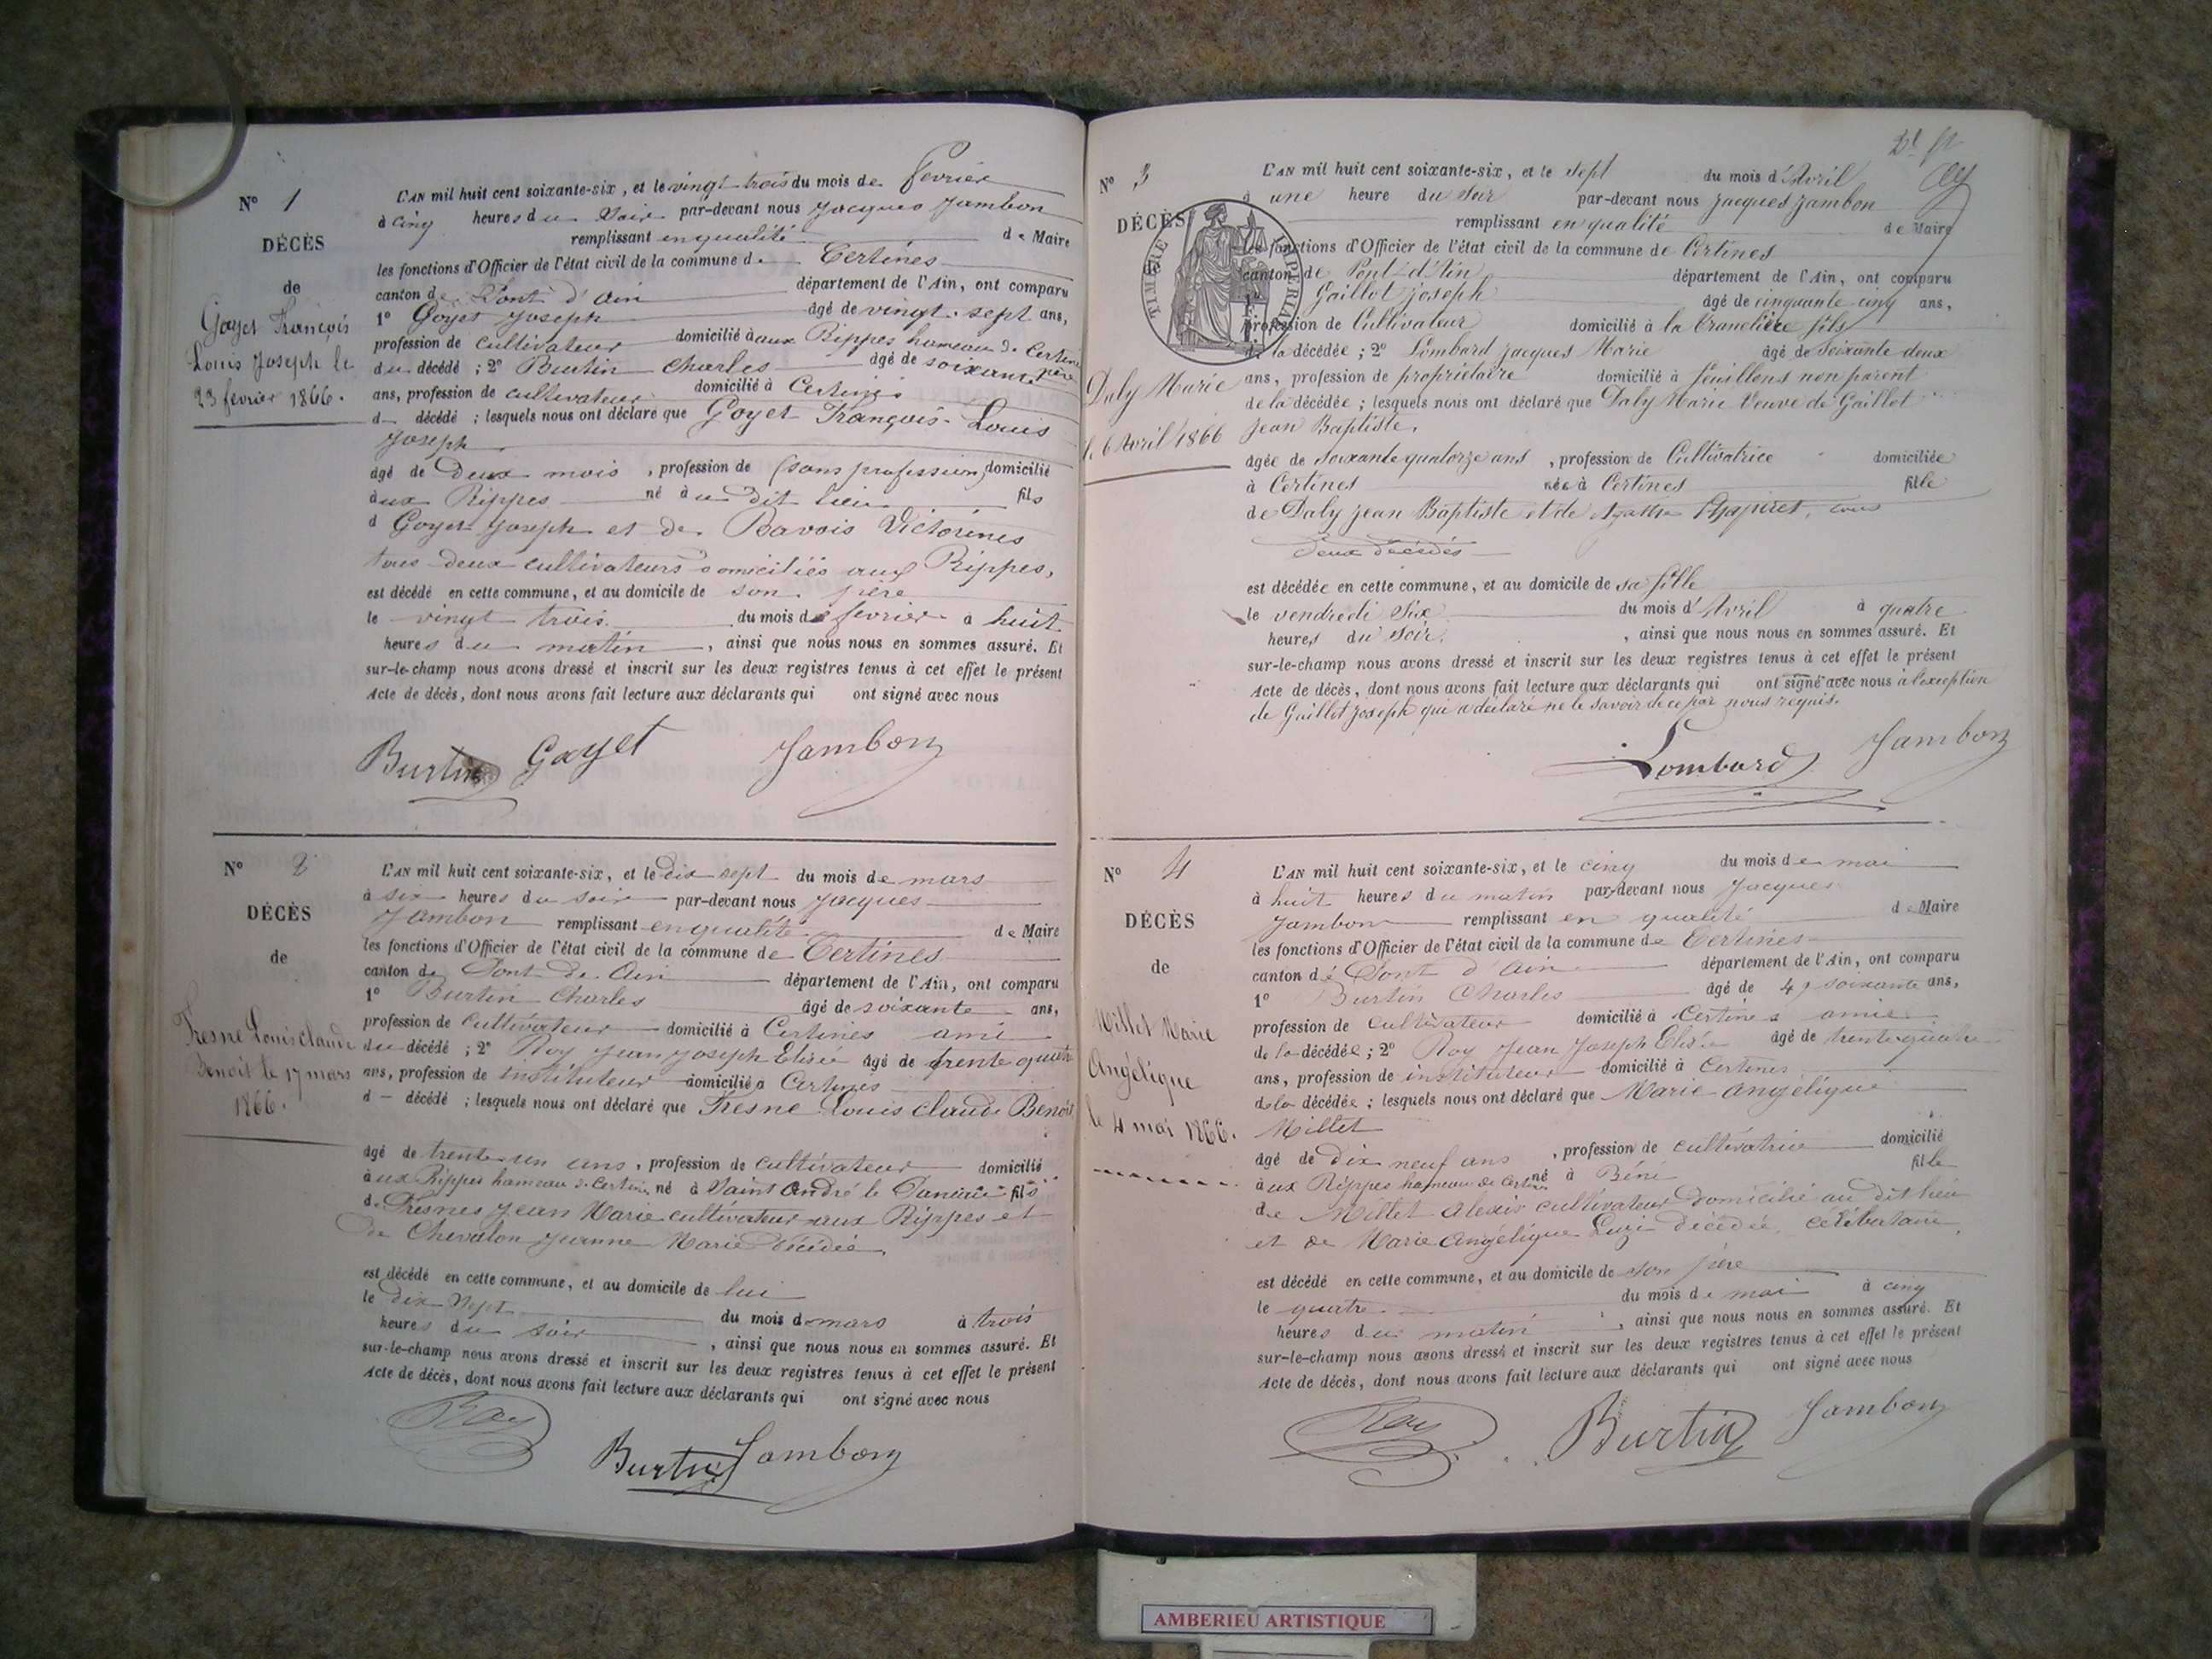 N° 1
DÉCÈS
de
Goyet François
Louis Joseph le
23 fevrier 1866.
L'AN mil huit cent soixante-six, et le vingt trois du mois de fevrier
à cinq heures du soir par-devant nous Jacques Jambon
remplissant en qualité de Maire
les fonctions d'Officier de l'état civil de la commune de Certines
canton de Pont d'Ain département de l'Ain, ont comparu
1° Goyet Joseph âgé de vingt-sept ans,
profession de cultivateur domicilié à aux Rippes hameau de Certines père
du décédé ; 2° Burtin Charles âgé de soixante
ans, profession de cultivateur domicilié à Certines
d décédé ; lesquels nous ont déclaré que Goyet François Louis
Joseph
âgé de deux mois, profession de (sans profession) domicilié
aux Rippes né au dit lieu fils
d Goyet Joseph et de Bavois Victorines
tous deux cultivateurs domiciliés aux Rippes,
est décédé en cette commune, et au domicile de son père
le vingt trois du mois de fevrier à huit
heures du matin, ainsi que nous nous en sommes assuré. Et
sur-le-champ nous avons dressé et inscrit sur les deux registres tenus à cet effet le présent
Acte de décès, dont nous avons fait lecture aux déclarants qui ont signé avec nous
Burtin Goyet Jambon
N° 2
DÉCÈS
de
Fresne Louis claude
Benoit le 17 mars
1866.
L'AN mil huit cent soixante-six, et le dix sept du mois de mars
à six heures du soir par-devant nous Jacques
Jambon remplissant en qualité de Maire
les fonctions d'Officier de l'état civil de la commune de Certines
canton de Pont de Ain département de l'Ain, ont comparu
1° Burtin Charles âgé de soixante ans,
profession de cultivateur domicilié à Certines ami
du décédé ; 2° Roy Jean Joseph Elisée âgé de trente quatre
ans, profession de instituteur domicilié à Certines
d décédé ; lesquels nous ont déclaré que Fresne Louis claude Benoit
âgé de trente un ans, profession de cultivateur domicilié
aux Rippes hameau de Certines né à Saint André le Panoux fils
de Fresnes Jean Marie cultivateur aux Rippes et
de Chevalon Jeanne Marie décédée
est décédé en cette commune, et au domicile de lui
le dix sept du mois de mars à trois
heures du soir, ainsi que nous nous en sommes assuré. Et
sur-le-champ nous avons dressé et inscrit sur les deux registres tenus à cet effet le présent
Acte de décès, dont nous avons fait lecture aux déclarants qui ont signé avec nous
Roy Burtin Jambon
N° 3
DÉCÈS
de
TIMBRE IMPERIAL
Daly Marie
le 6 Avril 1866
L'AN mil huit cent soixante-six, et le sept du mois d'Avril
à une heure du soir par-devant nous Jacques Jambon
remplissant en qualité de Maire
les fonctions d'Officier de l'état civil de la commune de Certines
canton de Pont-d'Ain département de l'Ain, ont comparu
1° Gaillot Joseph âgé de cinquante cinq ans,
profession de Cultivateur domicilié à la Tranclière fils
de la décédée ; 2° Lombard Jacques Marie âgé de soixante deux
ans, profession de propriétaire domicilié à feuillens non parent
de la décédée ; lesquels nous ont déclaré que Daly Marie Veuve de Gaillot
Jean Baptiste,
âgée de soixante quatorze ans, profession de Cultivatrice domiciliée
à Certines née à Certines fille
de Daly Jean Baptiste et de Agathe tous
deux décédés
est décédée en cette commune, et au domicile de sa fille
le vendredi six du mois d'Avril à quatre
heures du soir, ainsi que nous nous en sommes assuré. Et
sur-le-champ nous avons dressé et inscrit sur les deux registres tenus à cet effet le présent
Acte de décès, dont nous avons fait lecture aux déclarants qui ont signé avec nous à l'exception
de Gaillot Joseph qui a déclaré ne le savoir de ce par nous requis.
Lombard Jambon
N° 4
DÉCÈS
de
Millet Marie
Angélique
le 4 mai 1866.
L'AN mil huit cent soixante-six, et le cinq du mois de mai
à huit heures du matin par-devant nous Jacques
Jambon remplissant en qualité de Maire
les fonctions d'Officier de l'état civil de la commune de Certines
canton de Pont d'Ain département de l'Ain, ont comparu
1° Burtin Charles âgé de soixante ans,
profession de cultivateur domicilié à Certines amie
de la décédée ; 2° Roy Jean Joseph Elisée âgé de trente quatre
ans, profession de instituteur domicilié à Certines
de la décédée ; lesquels nous ont déclaré que Marie angélique
Millet
âgé de dix neuf ans, profession de cultivatrice domicilié
aux Rippes hameau de Certines né à Béni fille
de Millet Alexis cultivateur domicilié au dit lieu
et de Marie Angélique Luzi décédée, célibataire,
est décédé en cette commune, et au domicile de son père
le quatre du mois de mai à cinq
heures du matin, ainsi que nous nous en sommes assuré. Et
sur-le-champ nous avons dressé et inscrit sur les deux registres tenus à cet effet le présent
Acte de décès, dont nous avons fait lecture aux déclarants qui ont signé avec nous
Roy Burtin Jambon
AMBERIEU ARTISTIQUE